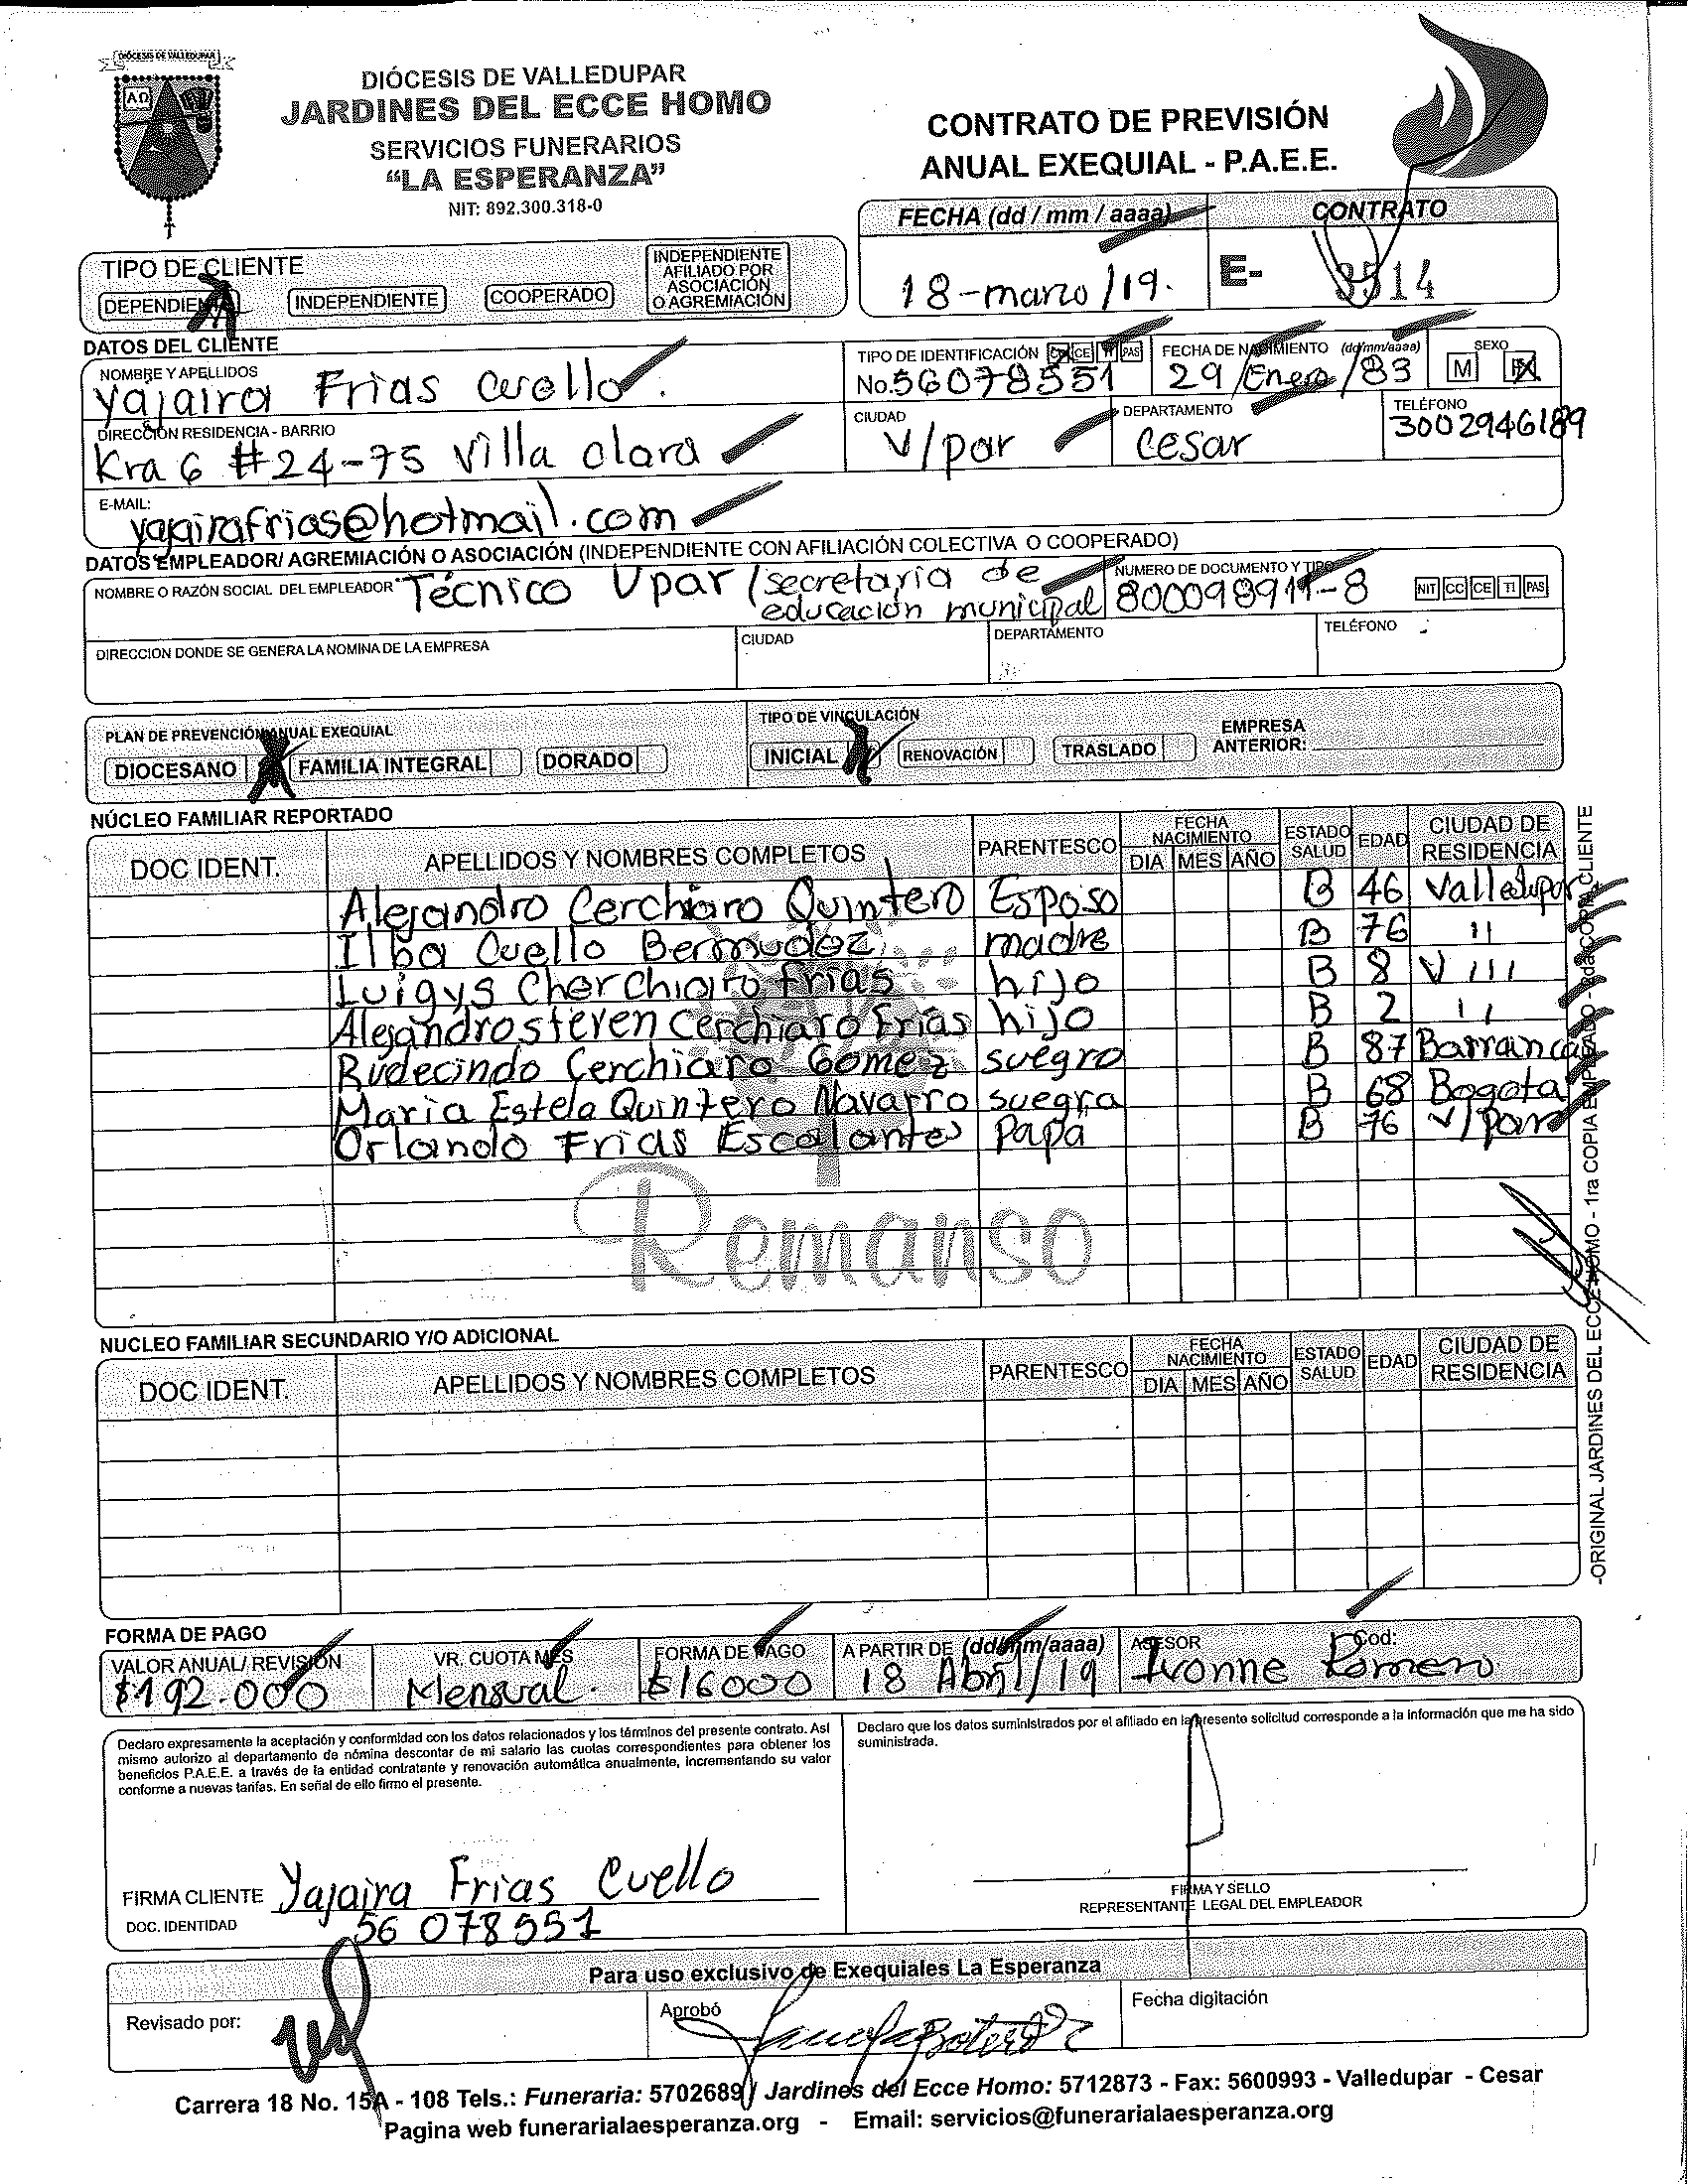 DIÓCESIS DE VALLEDUPAR
AΩ
DIÓCESIS DE VALLEDUPAR
JARDINES DEL ECCE HOMO
SERVICIOS FUNERARIOS
“LA ESPERANZA”
NIT: 892.300.318-0
CONTRATO DE PREVISIÓN
ANUAL EXEQUIAL - P.A.E.E.
FECHA (dd / mm / aaaa) CONTRATO
18-marzo /19. E- 14
TIPO DE CLIENTE
DEPENDIE INDEPENDIENTE COOPERADO INDEPENDIENTE AFILIADO POR ASOCIACIÓN O AGREMIACIÓN
DATOS DEL CLIENTE
NOMBRE Y APELLIDOS TIPO DE IDENTIFICACIÓN CE TI PAS FECHA DE NACIMIENTO (dd/mm/aaaa) SEXO
Yajaira Frias Cuello. No. 56078551 29/Enero/83 M F
DIRECCIÓN RESIDENCIA - BARRIO CIUDAD DEPARTAMENTO TELÉFONO
Kra 6 #24-75 Villa clara V/par Cesar 3002946189
E-MAIL:
yajairafrias@hotmail.com
DATOS EMPLEADOR/ AGREMIACIÓN O ASOCIACIÓN (INDEPENDIENTE CON AFILIACIÓN COLECTIVA O COOPERADO)
NOMBRE O RAZÓN SOCIAL DEL EMPLEADOR Técnico Upar /secretaria de educación municipal NUMERO DE DOCUMENTO Y TIPO 800098911-8 NIT CC CE TI PAS
DIRECCION DONDE SE GENERA LA NOMINA DE LA EMPRESA CIUDAD DEPARTAMENTO TELÉFONO
PLAN DE PREVENCIÓN ANUAL EXEQUIAL TIPO DE VINCULACIÓN EMPRESA ANTERIOR:
DIOCESANO FAMILIA INTEGRAL DORADO INICIAL RENOVACIÓN TRASLADO
NÚCLEO FAMILIAR REPORTADO
DOC IDENT. APELLIDOS Y NOMBRES COMPLETOS PARENTESCO FECHA NACIMIENTO DIA MES AÑO ESTADO SALUD EDAD CIUDAD DE RESIDENCIA
Alejandro Cerchiaro Quintero Esposo B 46 Valledupar
Ilba Cuello Bermudez madre B 76 11
Luigys Cherchiaro Frias hijo B 8 V 111
Alejandro steven Cerchiaro Frias hijo B 2 11
Rudecindo Cerchiaro Gomez suegro B 87 Barranca
Maria Estela Quintero Navarro suegra B 68 Bogota
Orlando Frias Escalante Papa B 76 V/par
Remanso
NUCLEO FAMILIAR SECUNDARIO Y/O ADICIONAL
DOC IDENT. APELLIDOS Y NOMBRES COMPLETOS PARENTESCO FECHA NACIMIENTO DIA MES AÑO ESTADO SALUD EDAD CIUDAD DE RESIDENCIA
-ORIGINAL JARDINES DEL ECCE HOMO - 1ra COPIA EMPLEADO - 2da COPIA CLIENTE
FORMA DE PAGO
VALOR ANUAL/ REVISIÓN VR. CUOTA MES FORMA DE PAGO A PARTIR DE (dd/mm/aaaa) ASESOR Cod:
$192.000 Mensual. $16000 18 Abril/19 Ivonne Romero
Declaro expresamente la aceptación y conformidad con los datos relacionados y los términos del presente contrato. Así
mismo autorizo al departamento de nómina descontar de mi salario las cuotas correspondientes para obtener los
beneficios P.A.E.E. a través de la entidad contratante y renovación automática anualmente, incrementando su valor
conforme a nuevas tarifas. En señal de ello firmo el presente.
Declaro que los datos suministrados por el afiliado en la presente solicitud corresponde a la información que me ha sido
suministrada.
FIRMA CLIENTE Yajaira Frias Cuello
DOC. IDENTIDAD 56 078551
FIRMA Y SELLO
REPRESENTANTE LEGAL DEL EMPLEADOR
Para uso exclusivo de Exequiales La Esperanza
Revisado por: Aprobó Fecha digitación
Carrera 18 No. 15A - 108 Tels.: Funeraria: 5702689 / Jardines del Ecce Homo: 5712873 - Fax: 5600993 - Valledupar - Cesar
Pagina web funerarialaesperanza.org - Email: servicios@funerarialaesperanza.org